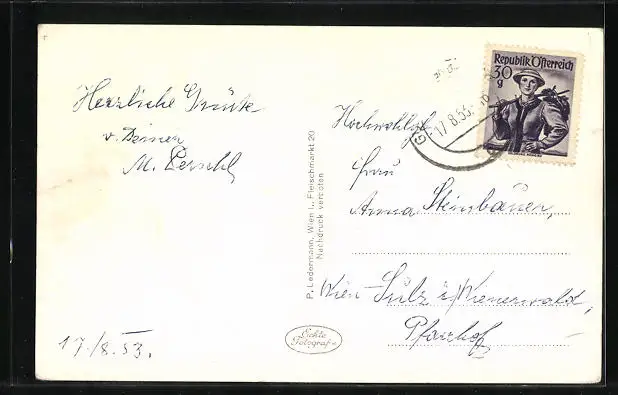 Herzliche Grüße
v. Deiner
M. Perschl
17./8.53.
P. Ledermann, Wien I., Fleischmarkt 20
Nachdruck verboten
Echte
Fotografie
Republik Österreich
30
g
17.8.53
Hochwohlgb.
Frau
Anna Steinbauer,
Wien-Sulz i/Wienerwald,
Pfarrhof